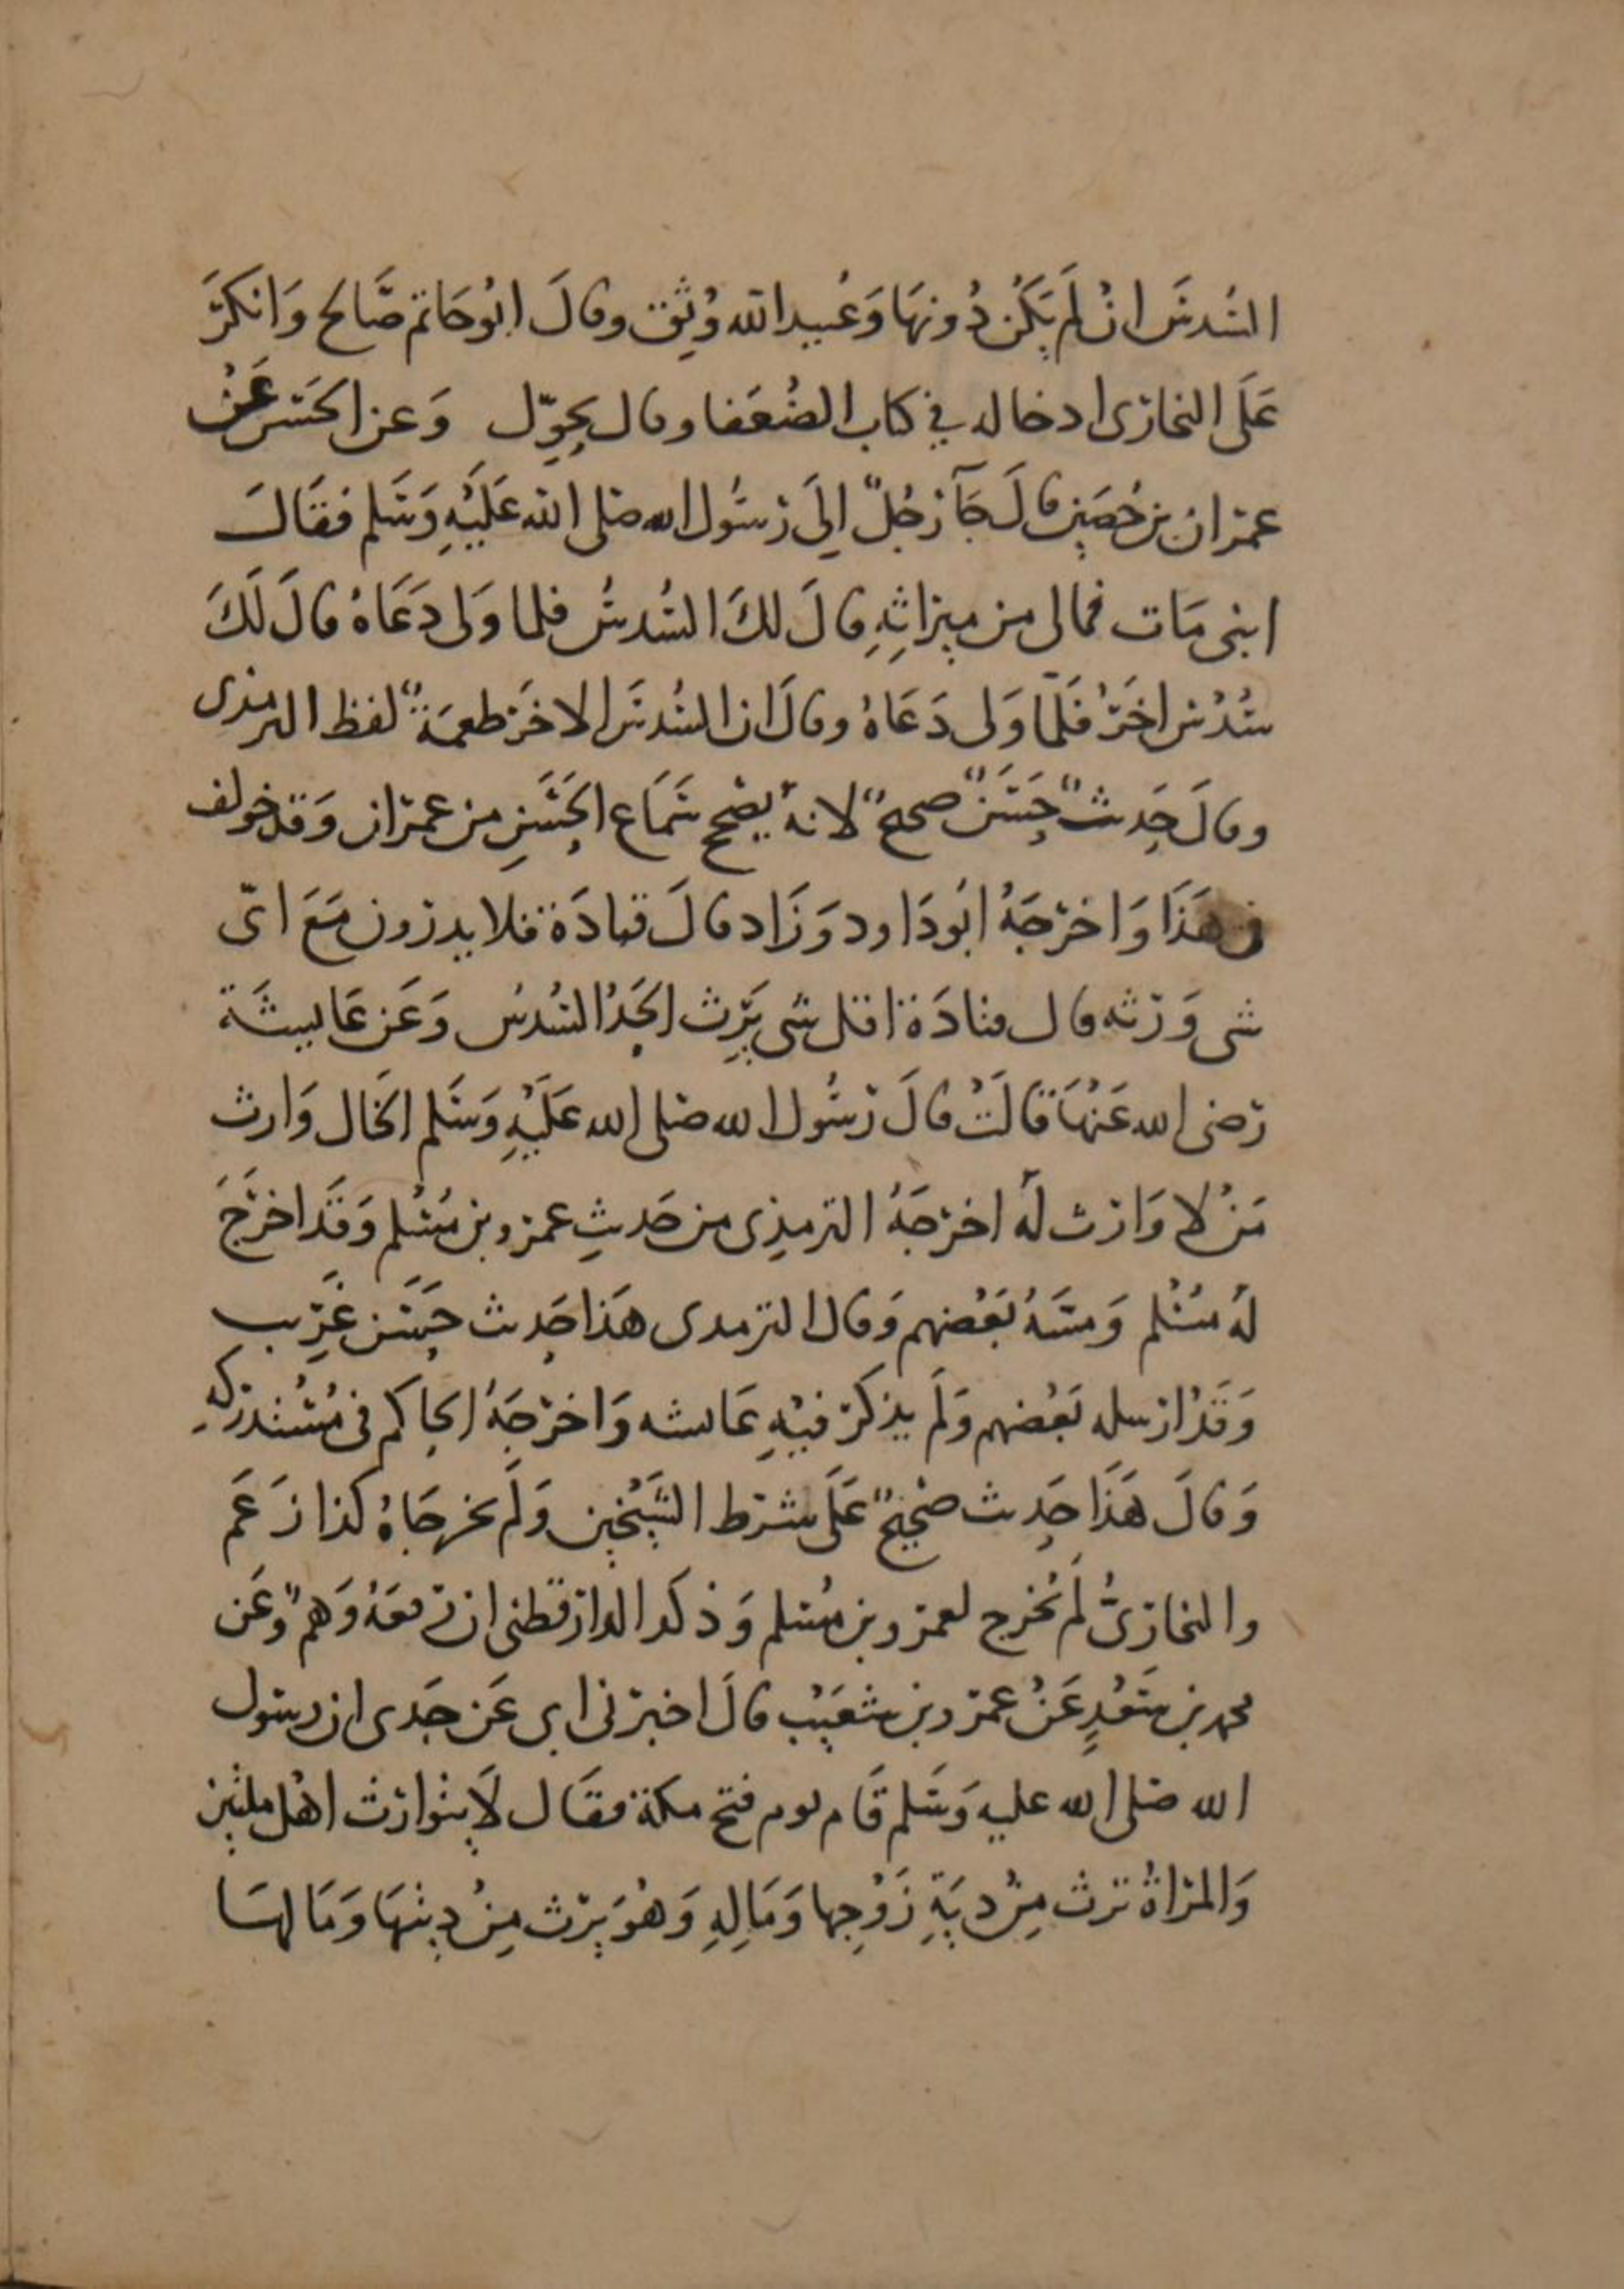 السُدسَ ان لَم يَكُن دُونهَا وَعُبيد الله وُثِق وقالَ ابُو حَاتم صَالح وَانكرَ
عَلَى البخارى ادخاله في كتاب الضُعَفا وقال يحوّل وَعن الحَسَن عَنْ
عمران بن حُصَين قالَ جَآ رَجُلٌ اِلَى رَسُول الله صَلى الله عَلَيْهِ وَسَلم فقَالَ
ابنى مَات فمالى من ميراثِهِ قالَ لكَ السُدسُ فلما وَلى دَعَاهُ قالَ لَكَ
سُدُس اخَرُ فَلَمّا وَلى دَعَاهُ وقالَ ان السُدسَ الاخَر طعمَةٌ لفظ الترمذى
وقالَ حَديثٌ حَسَنٌ صحيحٌ لانهُ يصح سَمَاع الحَسَنِ من عمران وَقد خولف
فى هَذَا وَاخرجَهُ ابُو دَاود وَزَاد قالَ قتادَة فلا يدرون مَعَ اىّ
شى وَرثه قال قتادَة اقل شى يَرِث الجَدُ السُدسُ وَعَن عَاييشَة
رَضى الله عَنْهَا قالَتْ قالَ رَسُول الله صَلى الله عَلَيْهِ وَسَلم الخَال وَارث
مَنْ لا وَارث لَه اخرجَهُ الترمذِى من حَديثِ عمرو بن مُسْلم وَقَد اخرَجَ
لهُ مُسْلم وَمسَهُ بَعْضهم وَقال الترمدى هَذا حَديث حَسَن غَريب
وَقَدْ ارسله بَعْضهم وَلَم يذكر فيْهِ عَائشه وَاخرجَهُ الحاكم فى مُسْتدركهِ
وَقالَ هَذَا حَديث صَحيحٌ عَلَى شرط الشَيْخين وَلَم يخرجَاهُ كذا زَعَمَ
والبخارىُّ لَم يُخرج لعمرو بن مُسلم وَذكَر الدارقطنى ان رَفعَهُ وَهمٌ وعَن
محمد بن سَعْدٍ عَنْ عمرو بن شعَيْب قالَ اخبرنى ابى عَن جَدى ان رسول
الله صَلى الله عليه وَسَلم قَام يوم فتح مكة فقَال لَا يتوارث اهْل ملتين
وَالمراةُ ترث مِنْ ديَةِ زَوْجِها وَمَالِهِ وَهُوَ يَرِث مِنْ ديتهَا وَمَالهَا